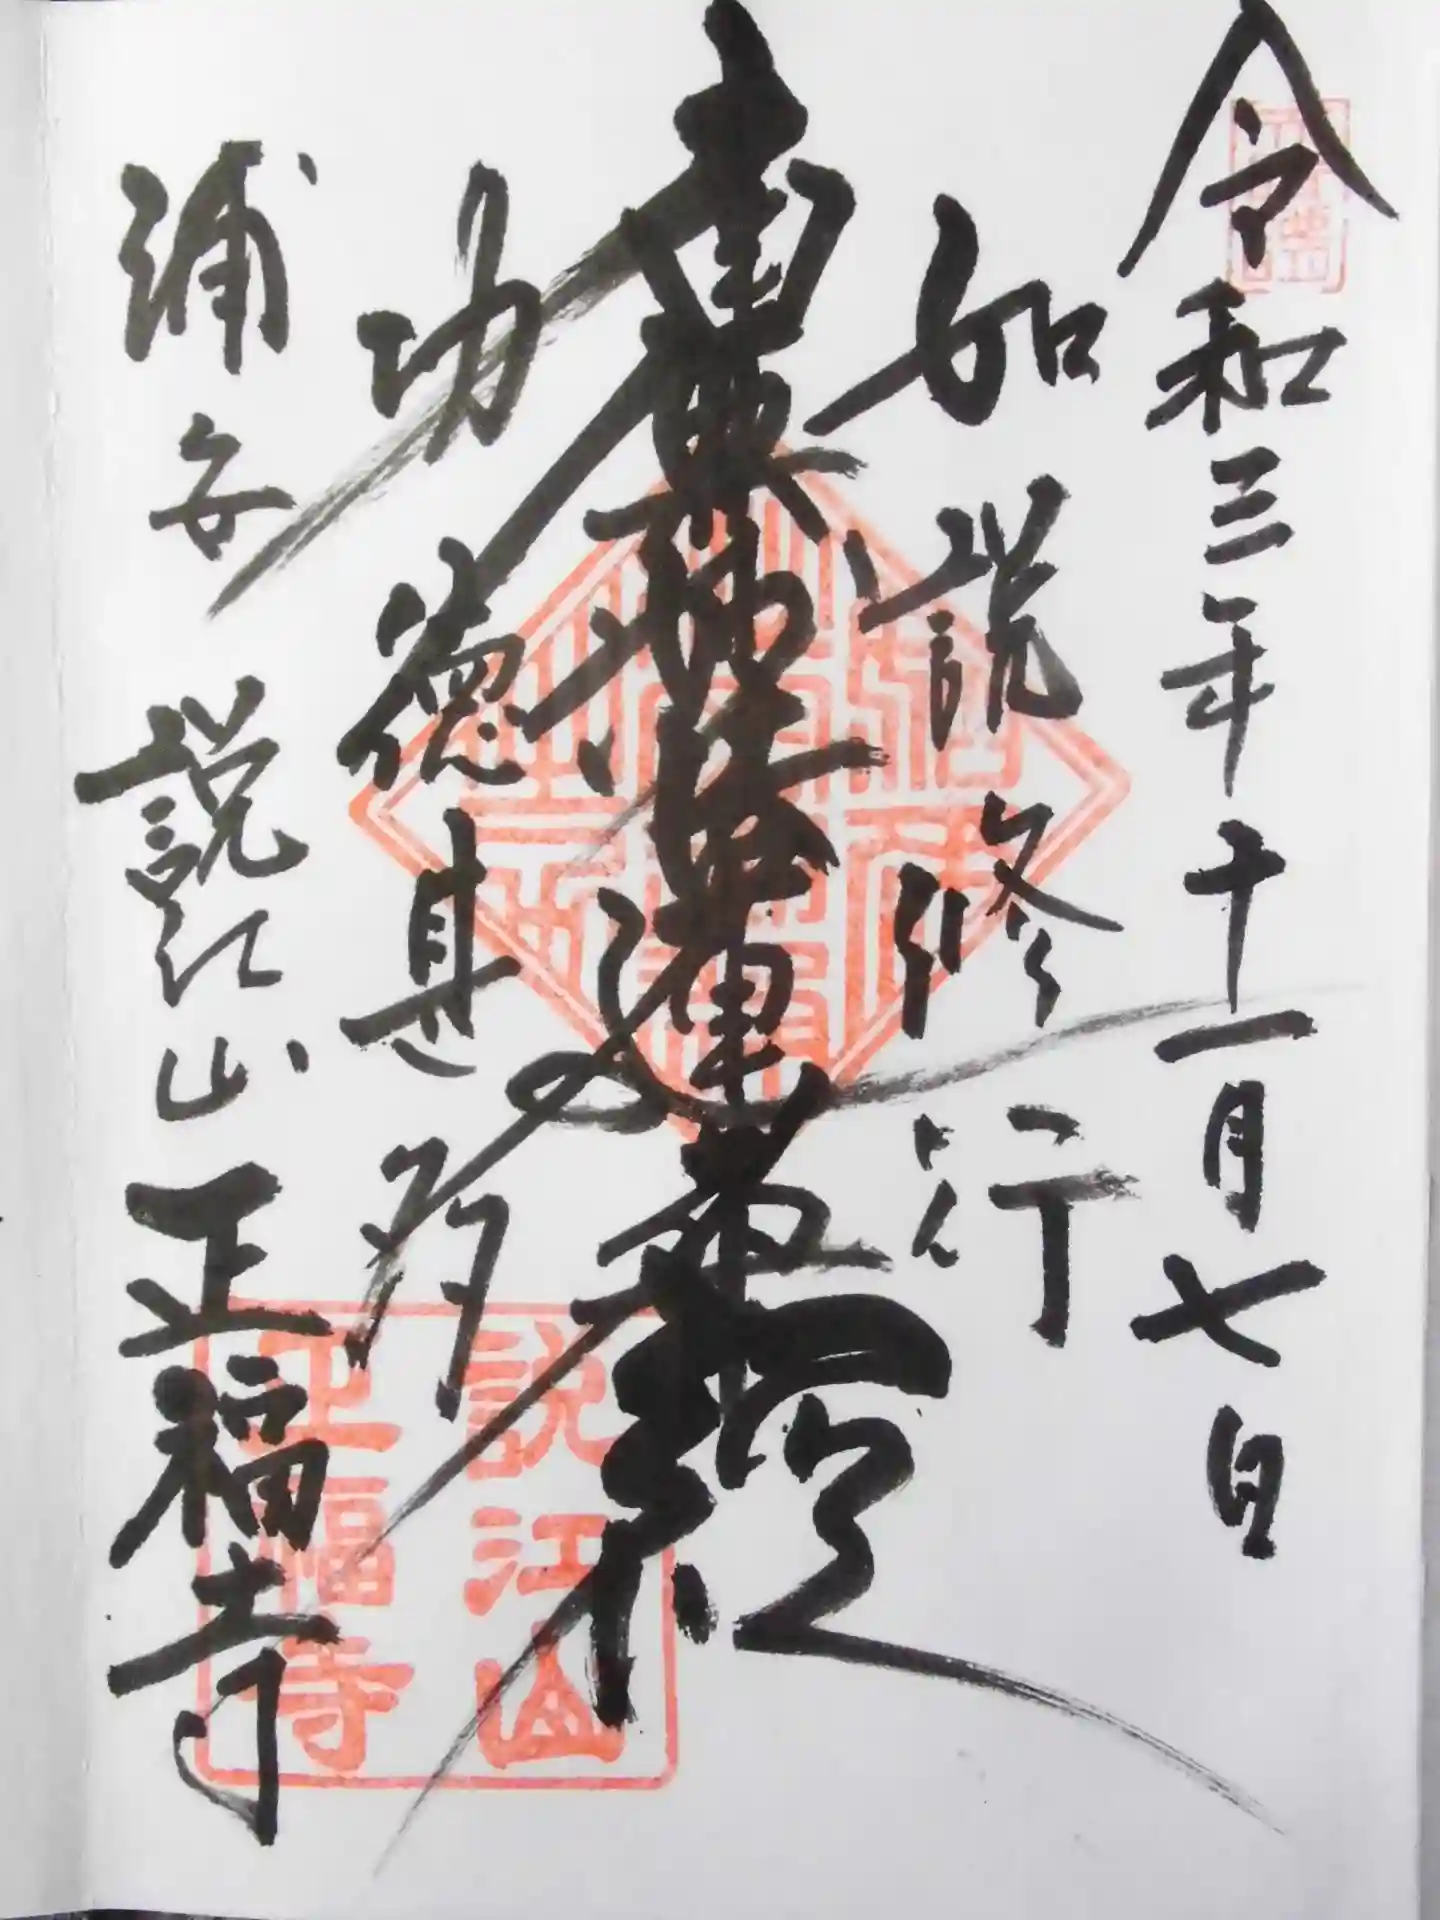 令和三年十一月七日
如説修行
抄ニ云ん
南無妙法蓮華経
功徳甚多
浦安 説江山 正福寺
説江山
正福寺